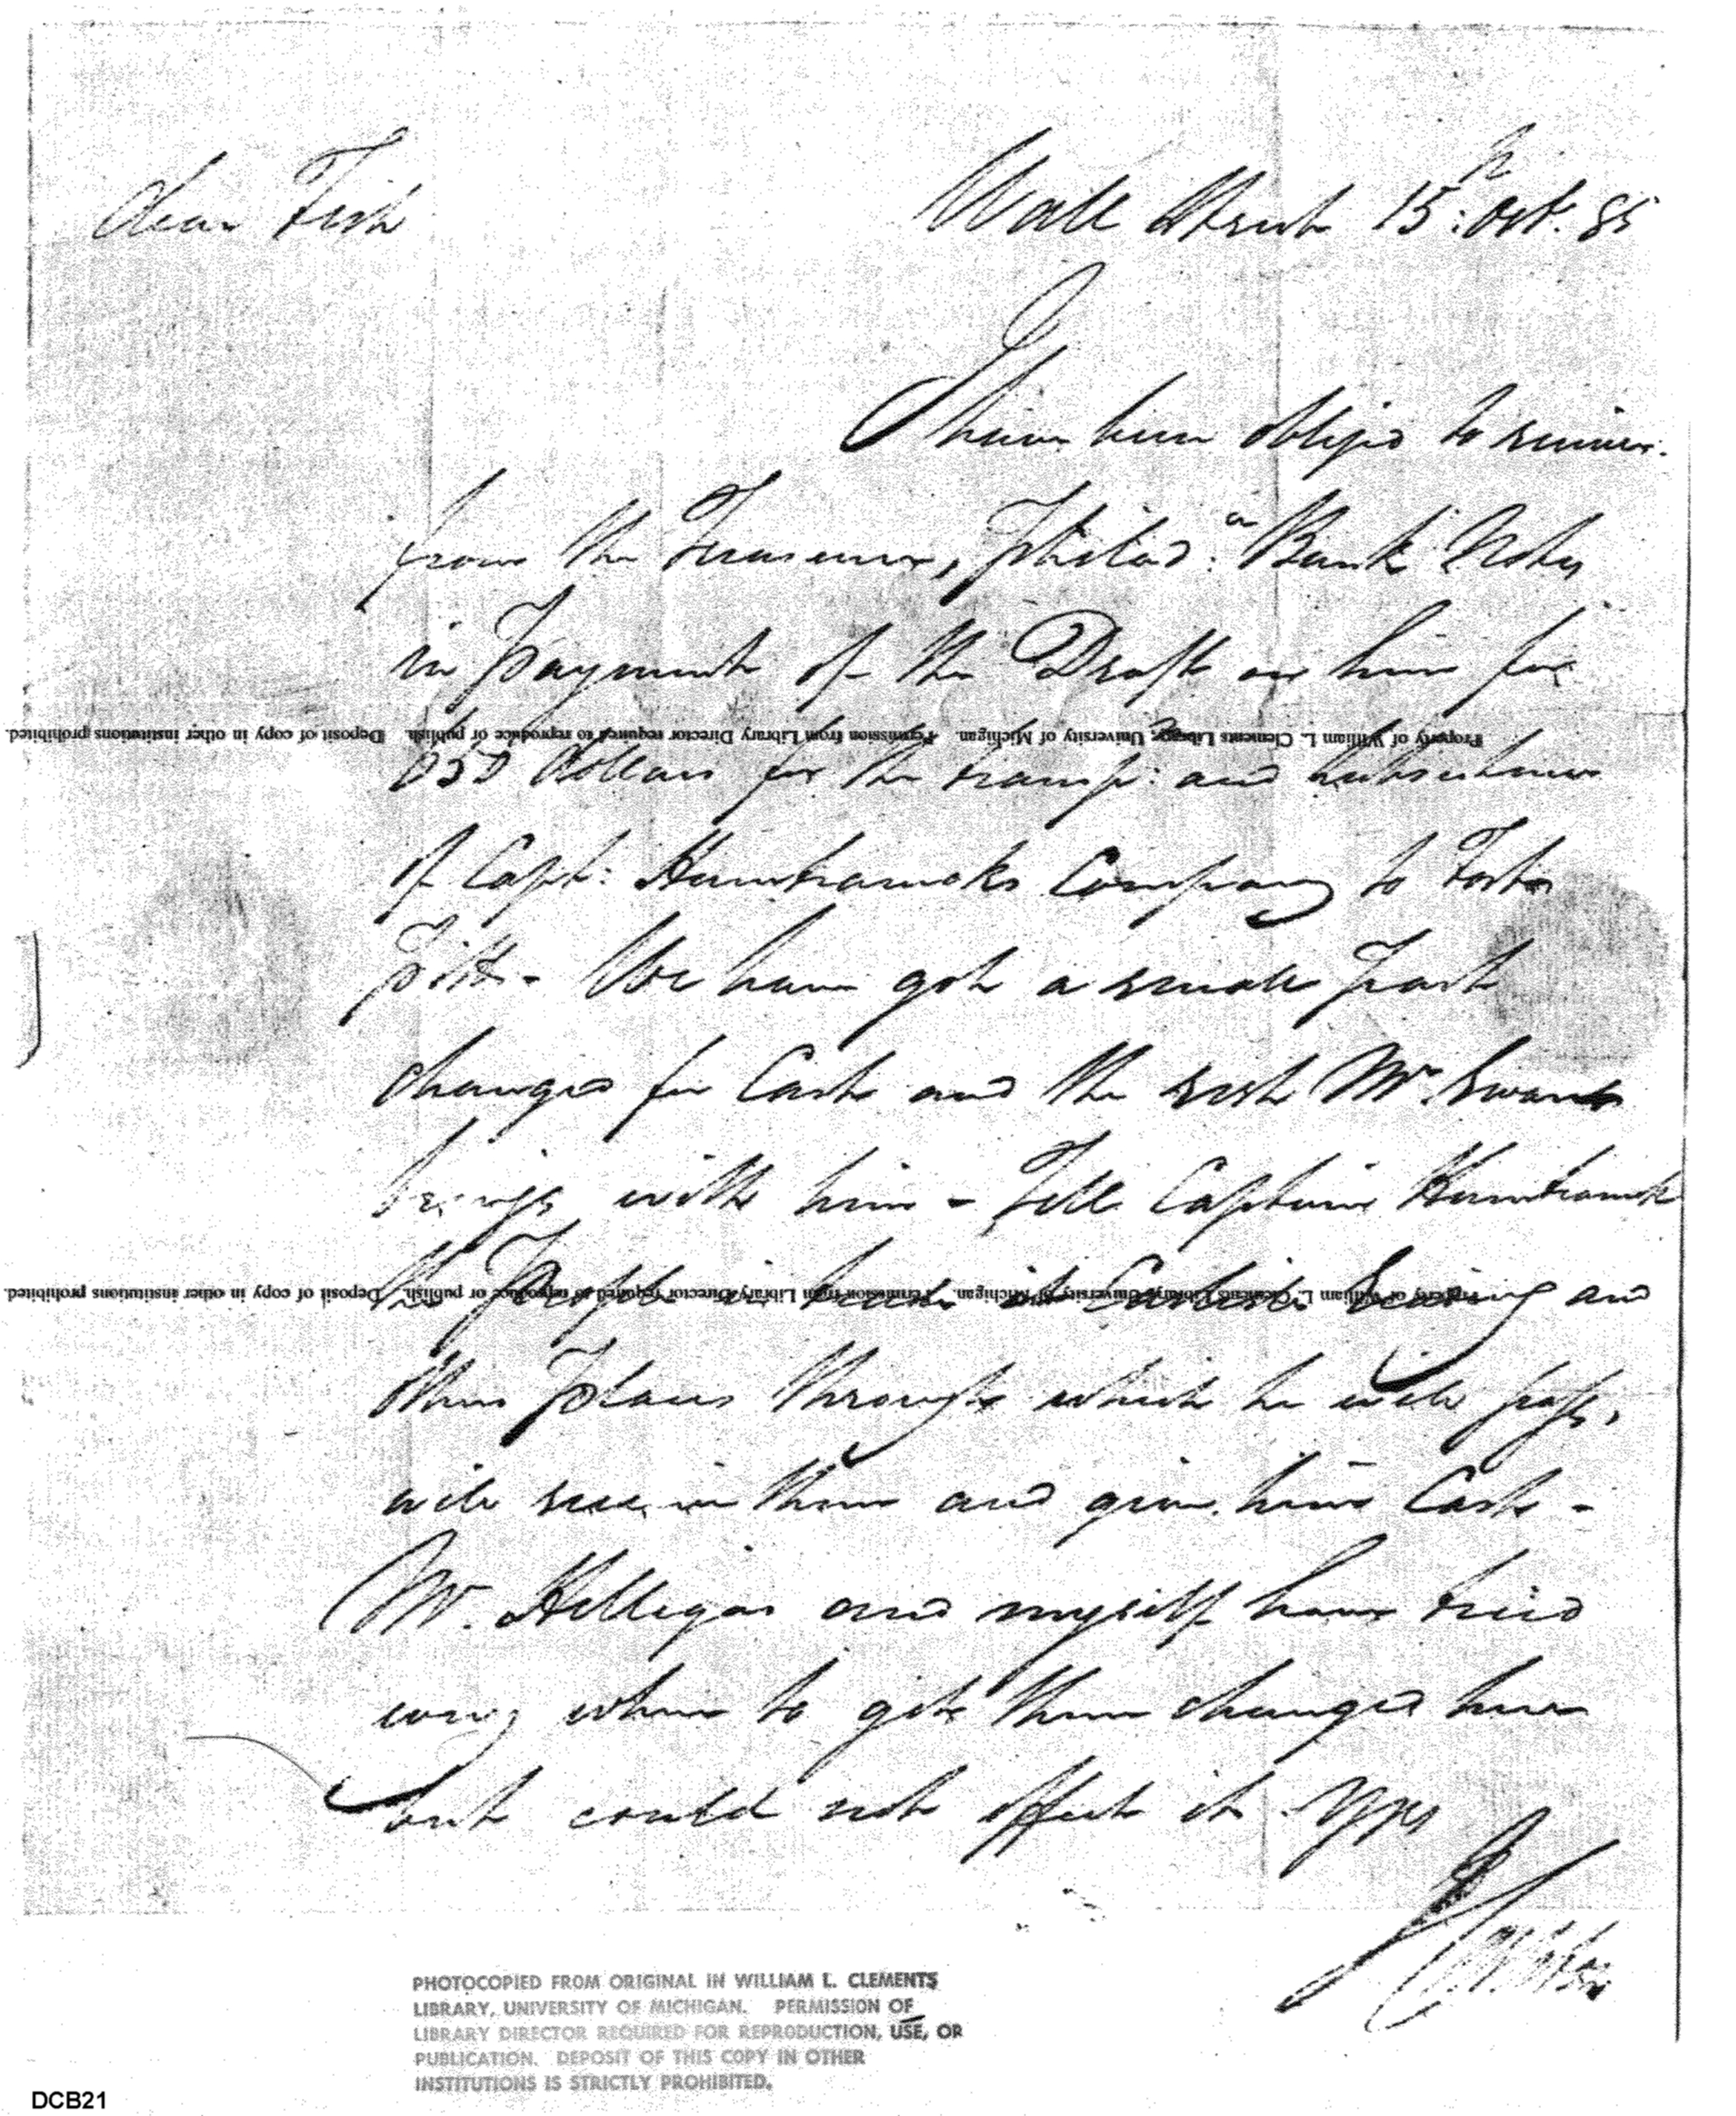 Wall Street 15th: Oct. 85
Dear Fish
I have been obliged to receive
from the Treasurer, Philad:a Bank Notes
in Payment of the Draft on him for
650 dollars for the transp: and subsistence
of Capt: Hamtramcks Company to Fort
Pitt - We have got a small Part
changed for Cash and the rest Mr. Swan
brings with him - Tell Captain Hamtramck
the People in trade at Carlisle and
other Places through which he will pass,
will receive them and give him Cash -
Mr. Hillegas and myself have tried
every where to get them changed here
but could not effect it Yrs
Property of William L. Clements Library, University of Michigan. Permission from Library Director required to reproduce or publish. Deposit of copy in other institutions prohibited.
Property of William L. Clements Library, University of Michigan. Permission from Library Director required to reproduce or publish. Deposit of copy in other institutions prohibited.
PHOTOCOPIED FROM ORIGINAL IN WILLIAM L. CLEMENTS
LIBRARY, UNIVERSITY OF MICHIGAN. PERMISSION OF
LIBRARY DIRECTOR REQUIRED FOR REPRODUCTION, USE, OR
PUBLICATION. DEPOSIT OF THIS COPY IN OTHER
INSTITUTIONS IS STRICTLY PROHIBITED.
DCB21